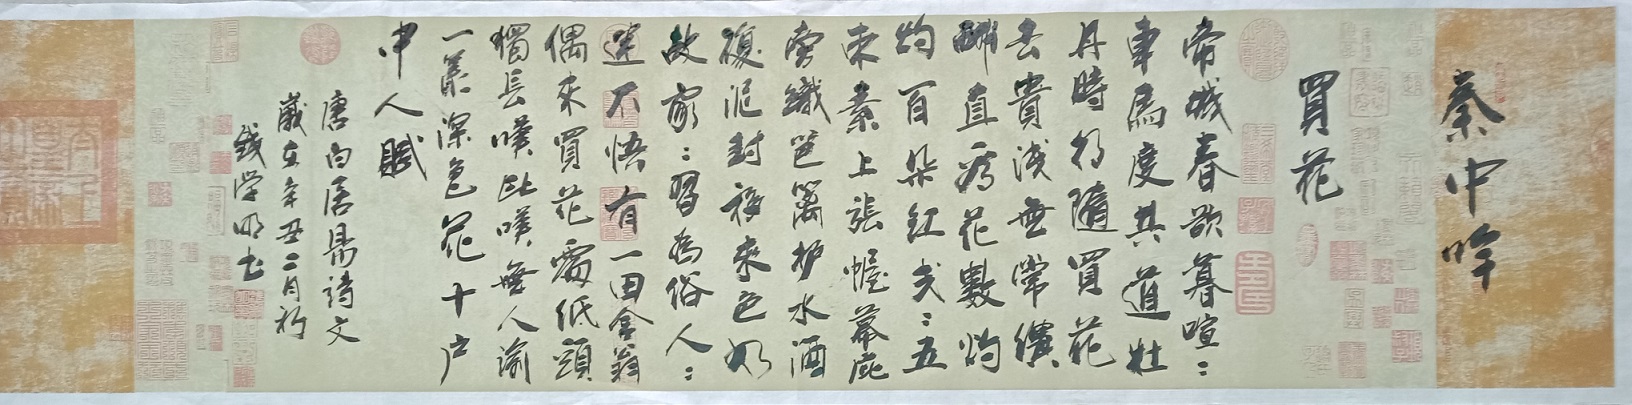 秦中吟
買花
帝城春欲暮喧:
車馬度共道牡
丹時相隨買花
去貴淺無常價
酬直看花數灼
灼百朵紅戔:五
束素上張幄幕庇
旁織笆籬护水洒
復泥封移來色如
故家:習為俗人:
迷不悟有一田舍翁
偶來買花處低頭
獨長嘆此嘆無人諭
一叢深色花十户
中人賦
唐白居易詩文
歲在辛丑二月初
钱学明书